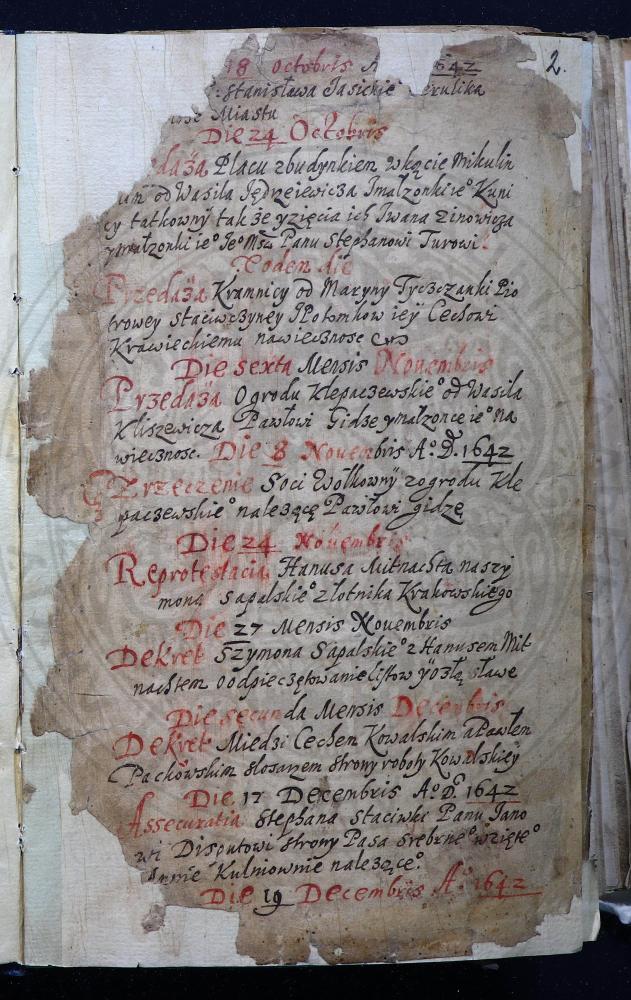 2.
18 Octobris A 1642
Stanisława Jasickie cerulika
Miastu
Die 24 Octobris
daża Placu z budynkiem w kącie Mikulin
od Wasila Jędrzeiewicza y małzonki ie° Kuni
cy tatkowny takze y zięcia ich Iwana Zinowicza
y małzonki ie° Je° Msci Panu Stephanowi Turowi
Eodem die
Przedaża Kramnicy od Maryny Tyczczanki Pio
trowey staciwczyney y Potomkow iey Cechowi
Krawieckiemu na wiecznosc
Die sexta Mensis Nouembris
Przedaża Ogrodu Klepaczewskie° od Wasila
Kliszewicza Pawłowi Gidze y małzonce ie° na
wiecznosc. Die 8 Nouembris A°. D. 1642
Zrzeczenie Soci Wołkowny z ogrodu Kle
paczewskie° nalezącę Pawłowi gidzę
Die 24 Nouembris
Reprotestacia Hanusa Mitnachta na szy
mona sapalskie° złotnika Krakowskiego
Die 27 Mensis Nouembris
Dekret Szymona Sapalskie° z Hanusem Mit
nachtem o odpieczętowanie listow y o złą sławę
Die secunda Mensis Decembris
Dekret Miedzi Cechem Kowalskim a Pawłem
Packowskim slosarzem strony roboty Kowalskiey
Die 17 Decembris A°. D. 1642
Assecuratia Stephana staciwki Panu Jano
wi Disputowi strony Pasa srebrne° wzięte°
Annie Kulniownie nalezące°.
Die 19 Decembris A° 1642